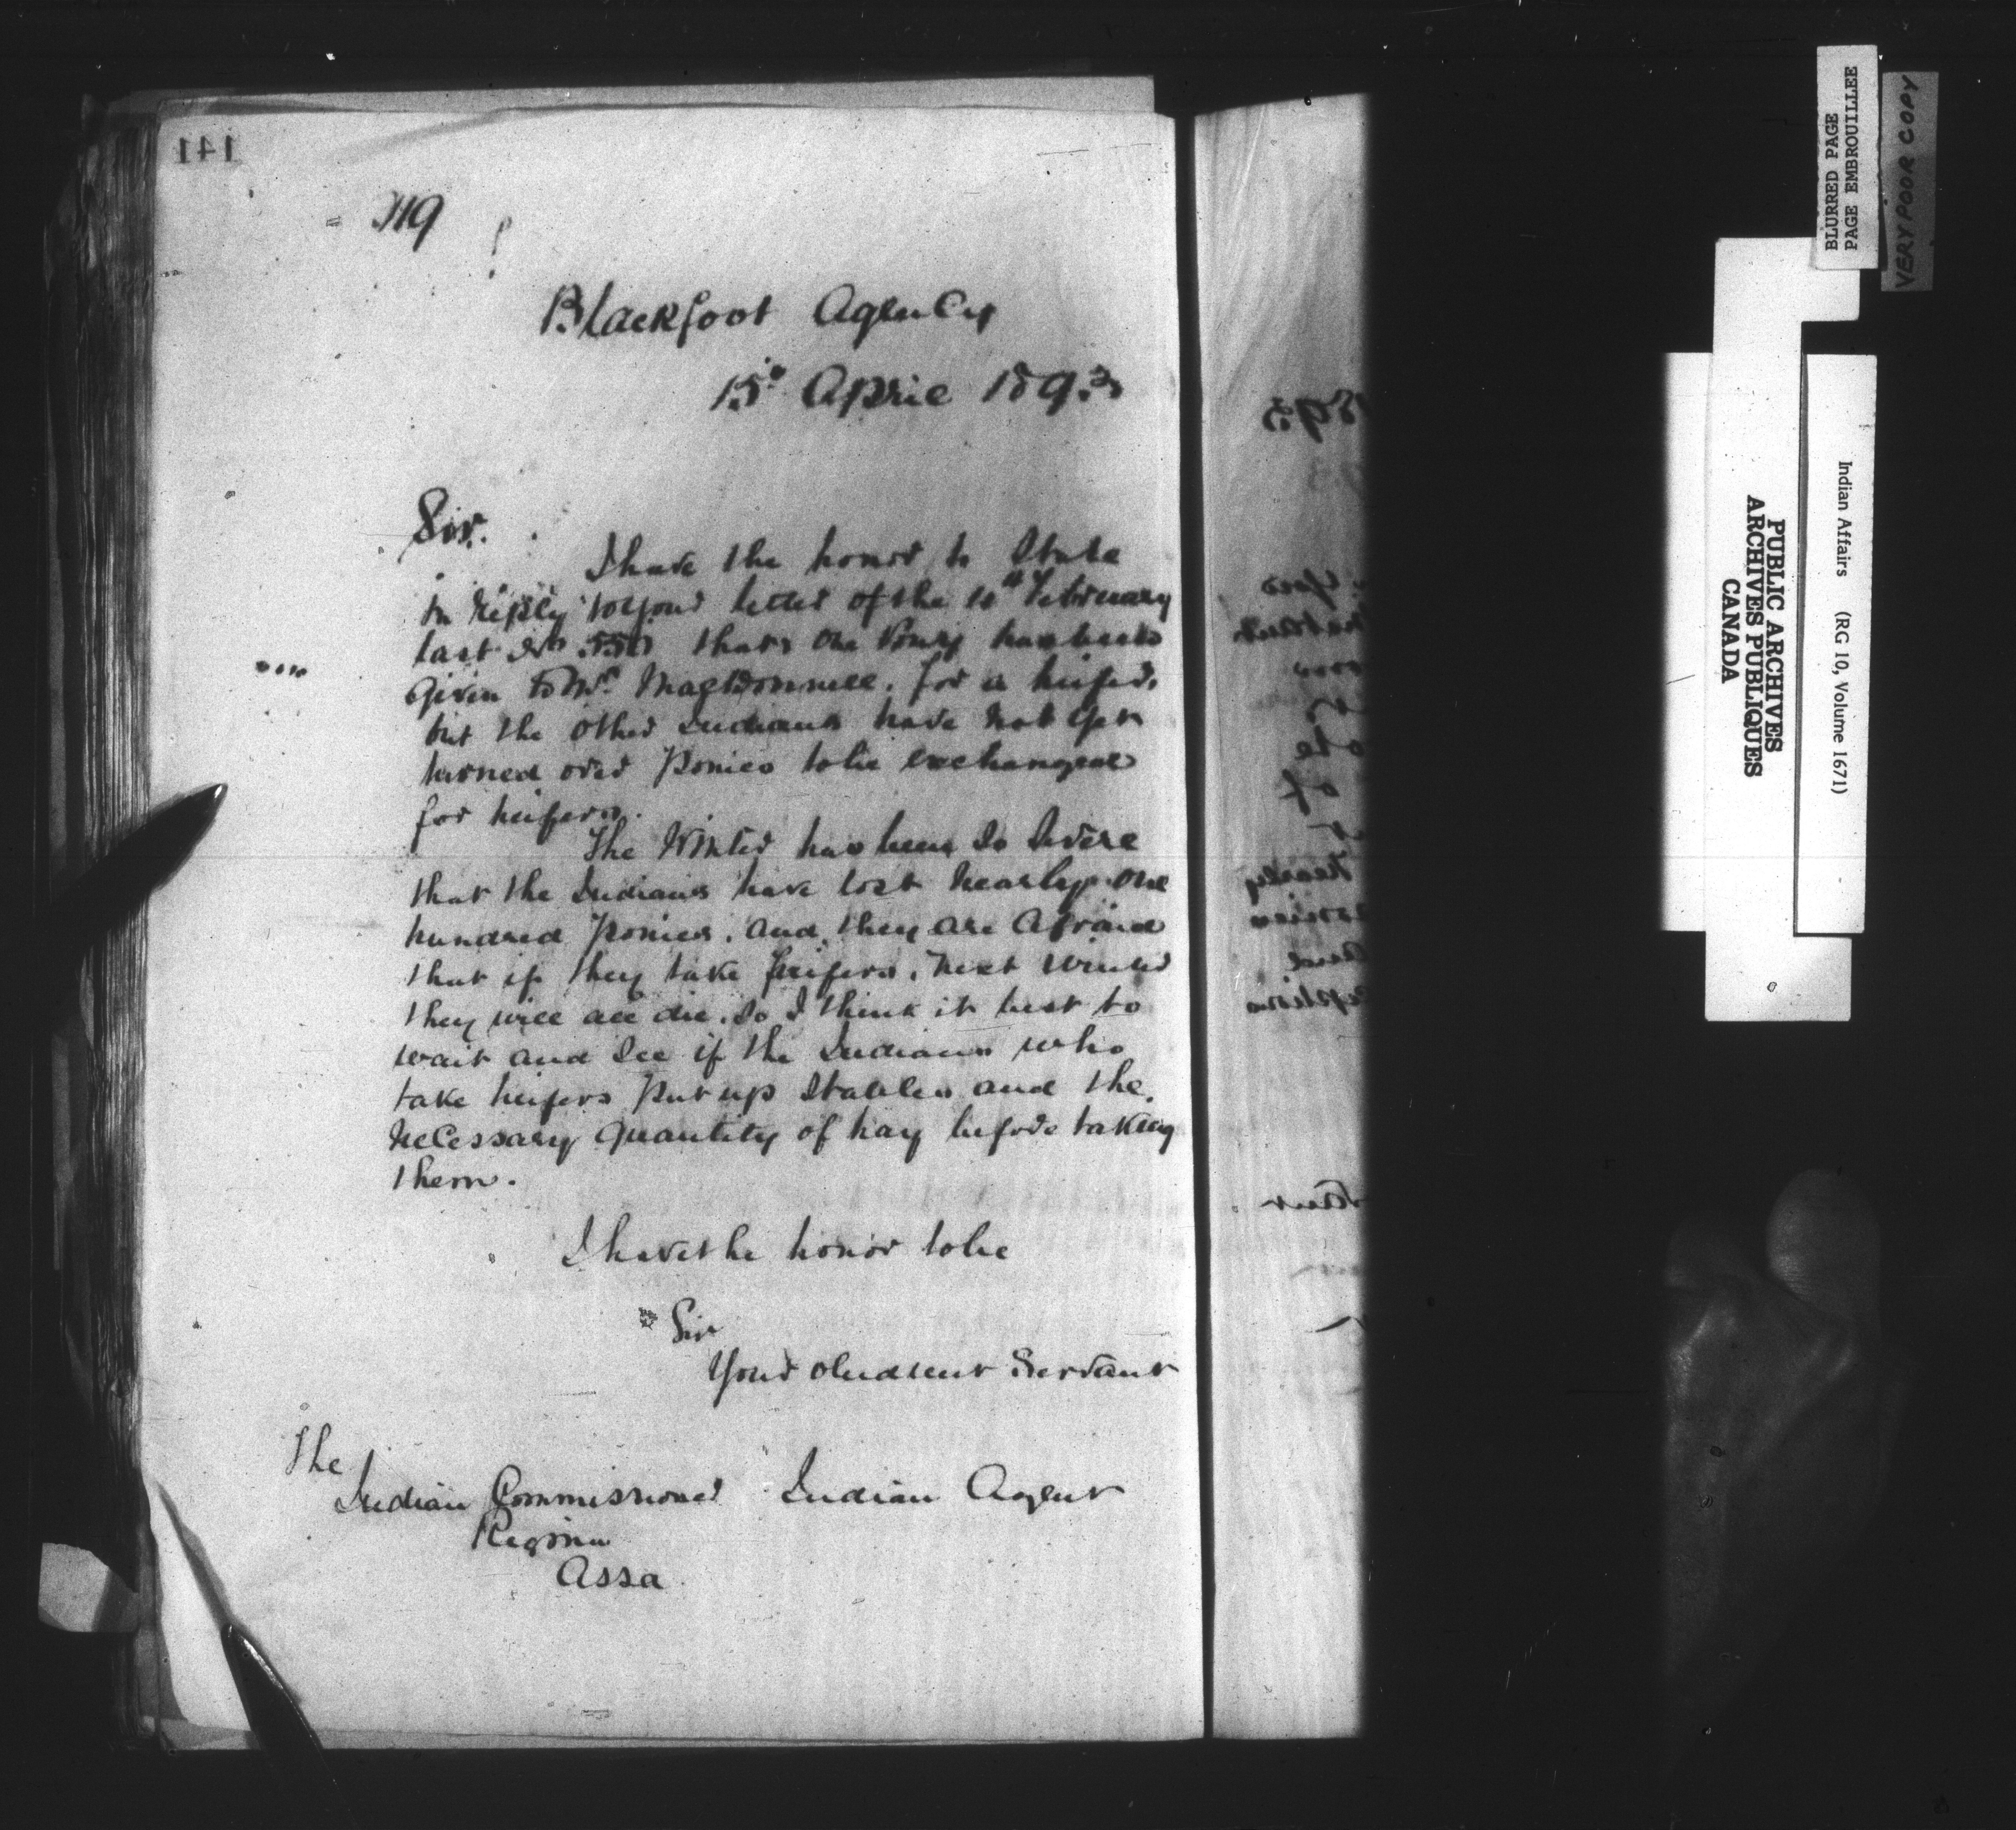 141
Blackfoot Agency
15th April 1893
Sir.
I have the honor to State
in reply to your letter of the February
last No that one Pony has been
given to Mr MacDonnell. for a heifer.
but the other Indians have not yet
turned over Ponies to be exchanged
for heifers.
The Winter has been so severe
that the Indians have lost nearly one
hundred Ponies. and they are afraid
that if they take heifers. next winter
they will all die. So I think it best to
wait and see if the Indians who
take heifers Put up Stables and the
necessary quantity of hay before taking
them.
I have the honor to be
Sir
Your obedient Servant
The
Indian Commissioner Indian Agent
Regina
Assa
1893
BLURRED PAGE
PAGE EMBROUILLEE
VERY POOR COPY
PUBLIC ARCHIVES
ARCHIVES PUBLIQUES
CANADA
Indian Affairs (RG 10, Volume 1671)